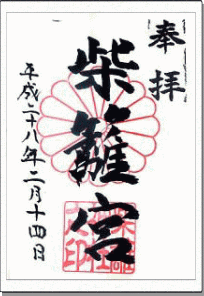 奉拝
柴籬宮
平成二十八年二月十四日